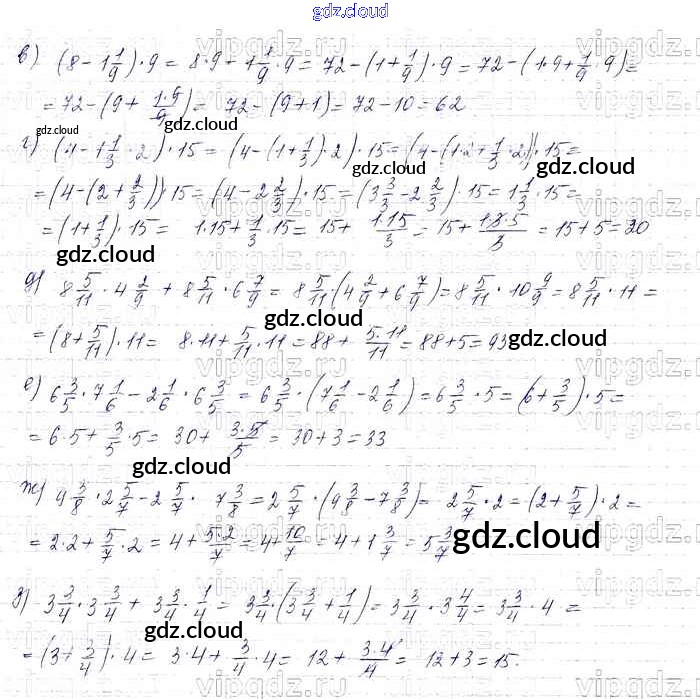 gdz.cloud
в) (8 - 1 1/9) · 9 = 8·9 - 1 1/9 · 9 = 72 - (1 + 1/9) · 9 = 72 - (1·9 + 1/9 · 9) =
= 72 - (9 + 1·9/9) = 72 - (9 + 1) = 72 - 10 = 62
gdz.cloud gdz.cloud
г) (4 - 1 1/3 · 2) · 15 = (4 - (1 + 1/3) · 2) · 15 = (4 - (1·2 + 1/3 · 2)) · 15 =
gdz.cloud
= (4 - (2 + 2/3)) · 15 = (4 - 2 2/3) · 15 = (3 3/3 - 2 2/3) · 15 = 1 1/3 · 15 =
= (1 + 1/3) · 15 = 1·15 + 1/3 · 15 = 15 + 1·15/3 = 15 + 1·3·5/3 = 15 + 5 = 20
gdz.cloud
д) 8 5/11 · 4 2/9 + 8 5/11 · 6 7/9 = 8 5/11 · (4 2/9 + 6 7/9) = 8 5/11 · 10 9/9 = 8 5/11 · 11 =
gdz.cloud
= (8 + 5/11) · 11 = 8·11 + 5/11 · 11 = 88 + 5·11/11 = 88 + 5 = 93
gdz.cloud
е) 6 3/5 · 7 1/6 - 2 1/6 · 6 3/5 = 6 3/5 · (7 1/6 - 2 1/6) = 6 3/5 · 5 = (6 + 3/5) · 5 =
= 6·5 + 3/5 · 5 = 30 + 3·5/5 = 30 + 3 = 33
gdz.cloud
ж) 9 3/8 · 2 5/7 - 2 5/7 · 7 3/8 = 2 5/7 · (9 3/8 - 7 3/8) = 2 5/7 · 2 = (2 + 5/7) · 2 =
= 2·2 + 5/7 · 2 = 4 + 5·2/7 = 4 + 10/7 = 4 + 1 3/7 = 5 3/7
gdz.cloud
з) 3 3/4 · 3 3/4 + 3 3/4 · 1/4 = 3 3/4 · (3 3/4 + 1/4) = 3 3/4 · 3 4/4 = 3 3/4 · 4 =
gdz.cloud
= (3 + 3/4) · 4 = 3·4 + 3/4 · 4 = 12 + 3·4/4 = 12 + 3 = 15.